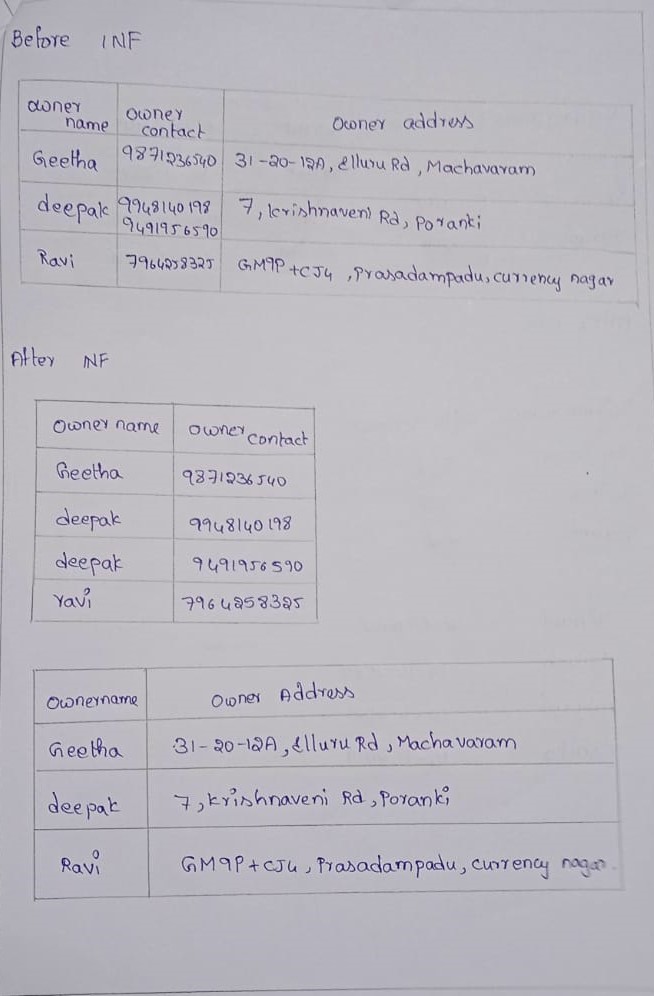 Before 1NF
owner name owner contact Owner address
Geetha 9871236540 31-20-12A, Elluru Rd, Machavaram
deepak 9948140198 7, krishnaveni Rd, Poranki
9491956590
Ravi 7964258325 GM9P+CJ4, Prasadampadu, currency nagar
After 1NF
Owner name Owner contact
Geetha 9871236540
deepak 9948140198
deepak 9491956590
ravi 7964258325
Ownername Owner Address
Geetha 31-20-12A, Elluru Rd, Machavaram
deepak 7, krishnaveni Rd, Poranki
Ravi GM9P+CJ4, Prasadampadu, currency nagar